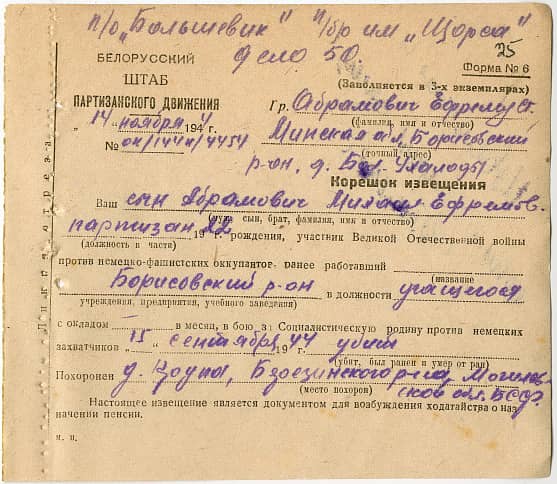 п/о „Большевик“ п/бр им „Щорса“
Дело 50.
25
БЕЛОРУССКИЙ
ШТАБ
ПАРТИЗАНСКОГО ДВИЖЕНИЯ
„14 „ ноября 1944 г.
№ ок/144н/4454
Форма № 6
(Заполняется в 3-х экземплярах)
Гр. Абрамович Ефрему Ст.
(фамилия, имя и отчество)
Минская обл, Борисовский
(точный адрес)
р-он, д. Бол. Ухалоды
Корешок извещения
Ваш сын Абрамович Михаил Ефремов.
(муж, сын, брат, фамилия, имя и отчество)
партизан 22
19 г. рождения, участник Великой Отечественной войны
(должность в части)
против немецко-фашистских оккупантов ранее работавший
(название
Борисовский р-он в должности учащегося
учреждения, предприятия, учебного заведения)
с окладом в месяц, в бою за Социалистическую родину против немецких
захватчиков „ 15 „ сентября 1944 г. убит
(убит, был ранен и умер от ран)
Похоронен д. Березинского р-на, Могилев-
(место похорон) ской обл. БССР.
Настоящее извещение является документом для возбуждения ходатайства о наз-
начении пенсии.
м. п.
Линия отреза